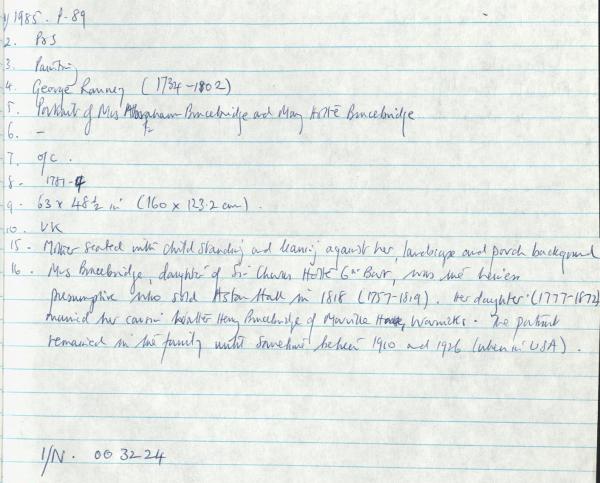 1/ 1985. P-89
2. P&S
3. Painting
4. George Romney (1734-1802)
5. Portrait of Mrs Abraham Bracebridge and Mary Holte Bracebridge
6. -
7. o/c.
8. 1781-4
9. 63 x 48½ in (160 x 123.2 cm).
10. UK
15. Mother seated with child standing and leaning against her, landscape and porch background
16. Mrs Bracebridge, daughter of Sir Charles Holte 6th Bart, was the heiress
presumptive who sold Aston Hall in 1818 (1757-1819). Her daughter (1777-1872)
married her cousin Walter Henry Bracebridge of House, Warwicks. The portrait
remained in the family until sometime between 1910 and 1926 (when in USA).
I/N. 003224